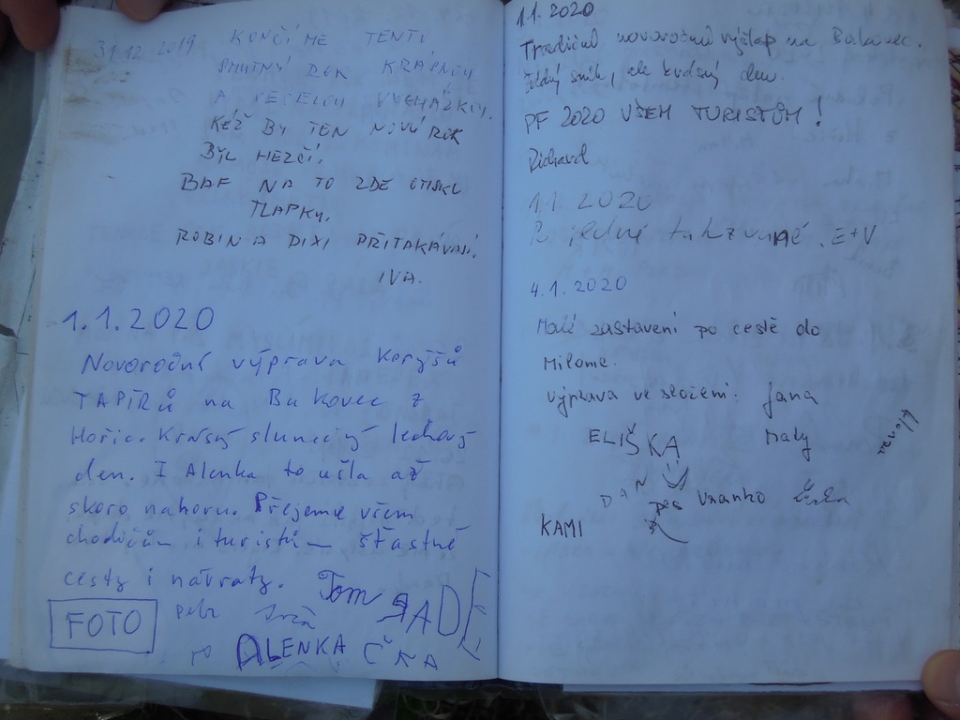 31.12.2019 KONČÍME TENTO
SMUTNÝ DEN KRÁSNOU
A VESELOU VYCHÁZKOU.
KÉŽ BY TEN NOVÝ ROK
BYL HEZČÍ.
BAF NA TO ZDE OTISKL
TLAPKU.
ROBIN A DIXI PŘITAKÁVAJÍ.
IVA.
1.1.2020
Novoroční výprava Koryšů
TAPÍRŮ na Bukovec z
Hořic. Krásný slunečný ledový
den. I Alenka to ušla až
skoro nahoru. Přejeme všem
chodičům i turistům šťastné
cesty i návraty. Tom JADE
FOTO petr
ALENKA ČKA
1.1.2020
Tradiční novoroční výšlap na Bukovec.
Žádný sníh, ale krásný den.
PF 2020 VŠEM TURISTŮM!
Richard
1.1.2020
jedné takzvané. E+V
4.1.2020
Malé zastavení po cestě do
Milome.
Výprava ve složení: Jana
ELIŠKA Maty
DAN pes
KAMI